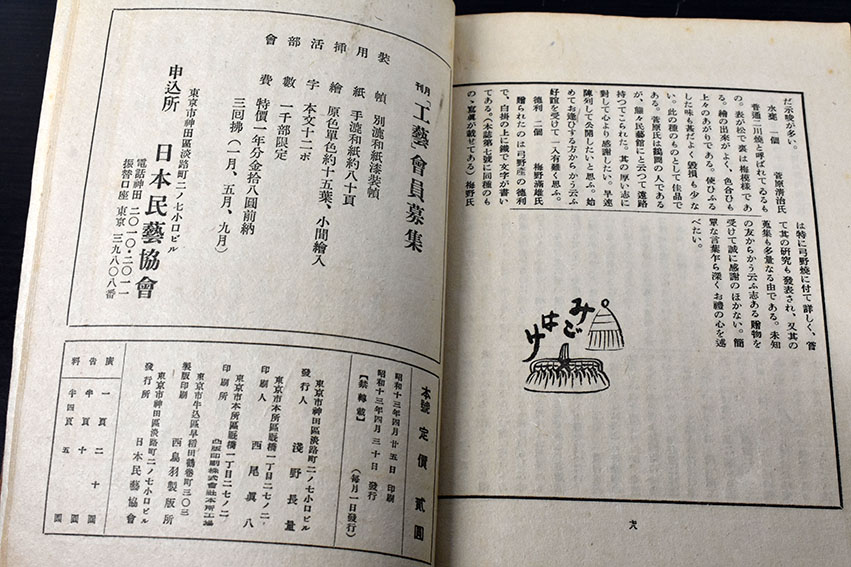 だ示唆が多い。
水甕　一個　　菅原清治氏
普通二川焼と呼ばれてゐるも
の。表が松で裏は梅模様であ
る。繪の出來がよく、色合ひも
上々のあがりである。使ひふる
した味も甚だよく毀損も少な
い。此の種のものとして佳品で
ある。菅原氏は鶴岡の人である
が、態々民藝館にと云つて遠路
持つてこられた。其の厚い志に
對して心より感謝したい。早速
陳列して公開したいと思ふ。始
めてお逢ひする方からかう云ふ
好誼を受けて一入有難く思ふ。
徳利　二個　　梅野滿雄氏
贈られたのは弓野産の徳利
で、白掛の上に鐵で文字が書い
てある。（本誌第七號に同種のも
のゝ寫眞が載せてある）梅野氏
は特に弓野燒に付て詳しく、嘗
て其の研究も發表され、又其の
蒐集も多量なる由である。未知
の友からかう云ふ志ある贈物を
受けて誠に感謝のほかない。簡
單な言葉乍ら深くお禮の心を述
べたい。
みごはけ
九八
月刊「工藝」會員募集
裝幀　別漉和紙漆裝幀
用紙　手漉和紙約八十頁
挿繪　原色單色約十五葉、小間繪入
活字　本文十二ポ
部數　一千部限定
會費　特價一年分金拾八圓前納
三回拂（一月、五月、九月）
東京市神田區淡路町二ノ七小口ビル
申込所　日本民藝協會
電話神田　二〇一〇・二〇一一
振替口座　東京　三九八〇八番
本號定價　貳圓
昭和十三年四月廿五日　印刷
昭和十三年四月三十日　發行
【禁轉載】　（毎月一日發行）
東京市神田區淡路町二ノ七小口ビル
發行人　淺野長量
東京市本所區厩橋一丁目二七ノ二
印刷人　西尾眞八
東京市本所區厩橋一丁目二七ノ二
印刷所　凸版印刷株式會社本所工場
東京市牛込區早稲田鶴巻町三〇三
製版印刷　西島羽製版所
東京市神田區淡路町二ノ七小口ビル
發行所　日本民藝協會
廣告料
一頁　二十圓
半頁　十圓
半四頁　五圓